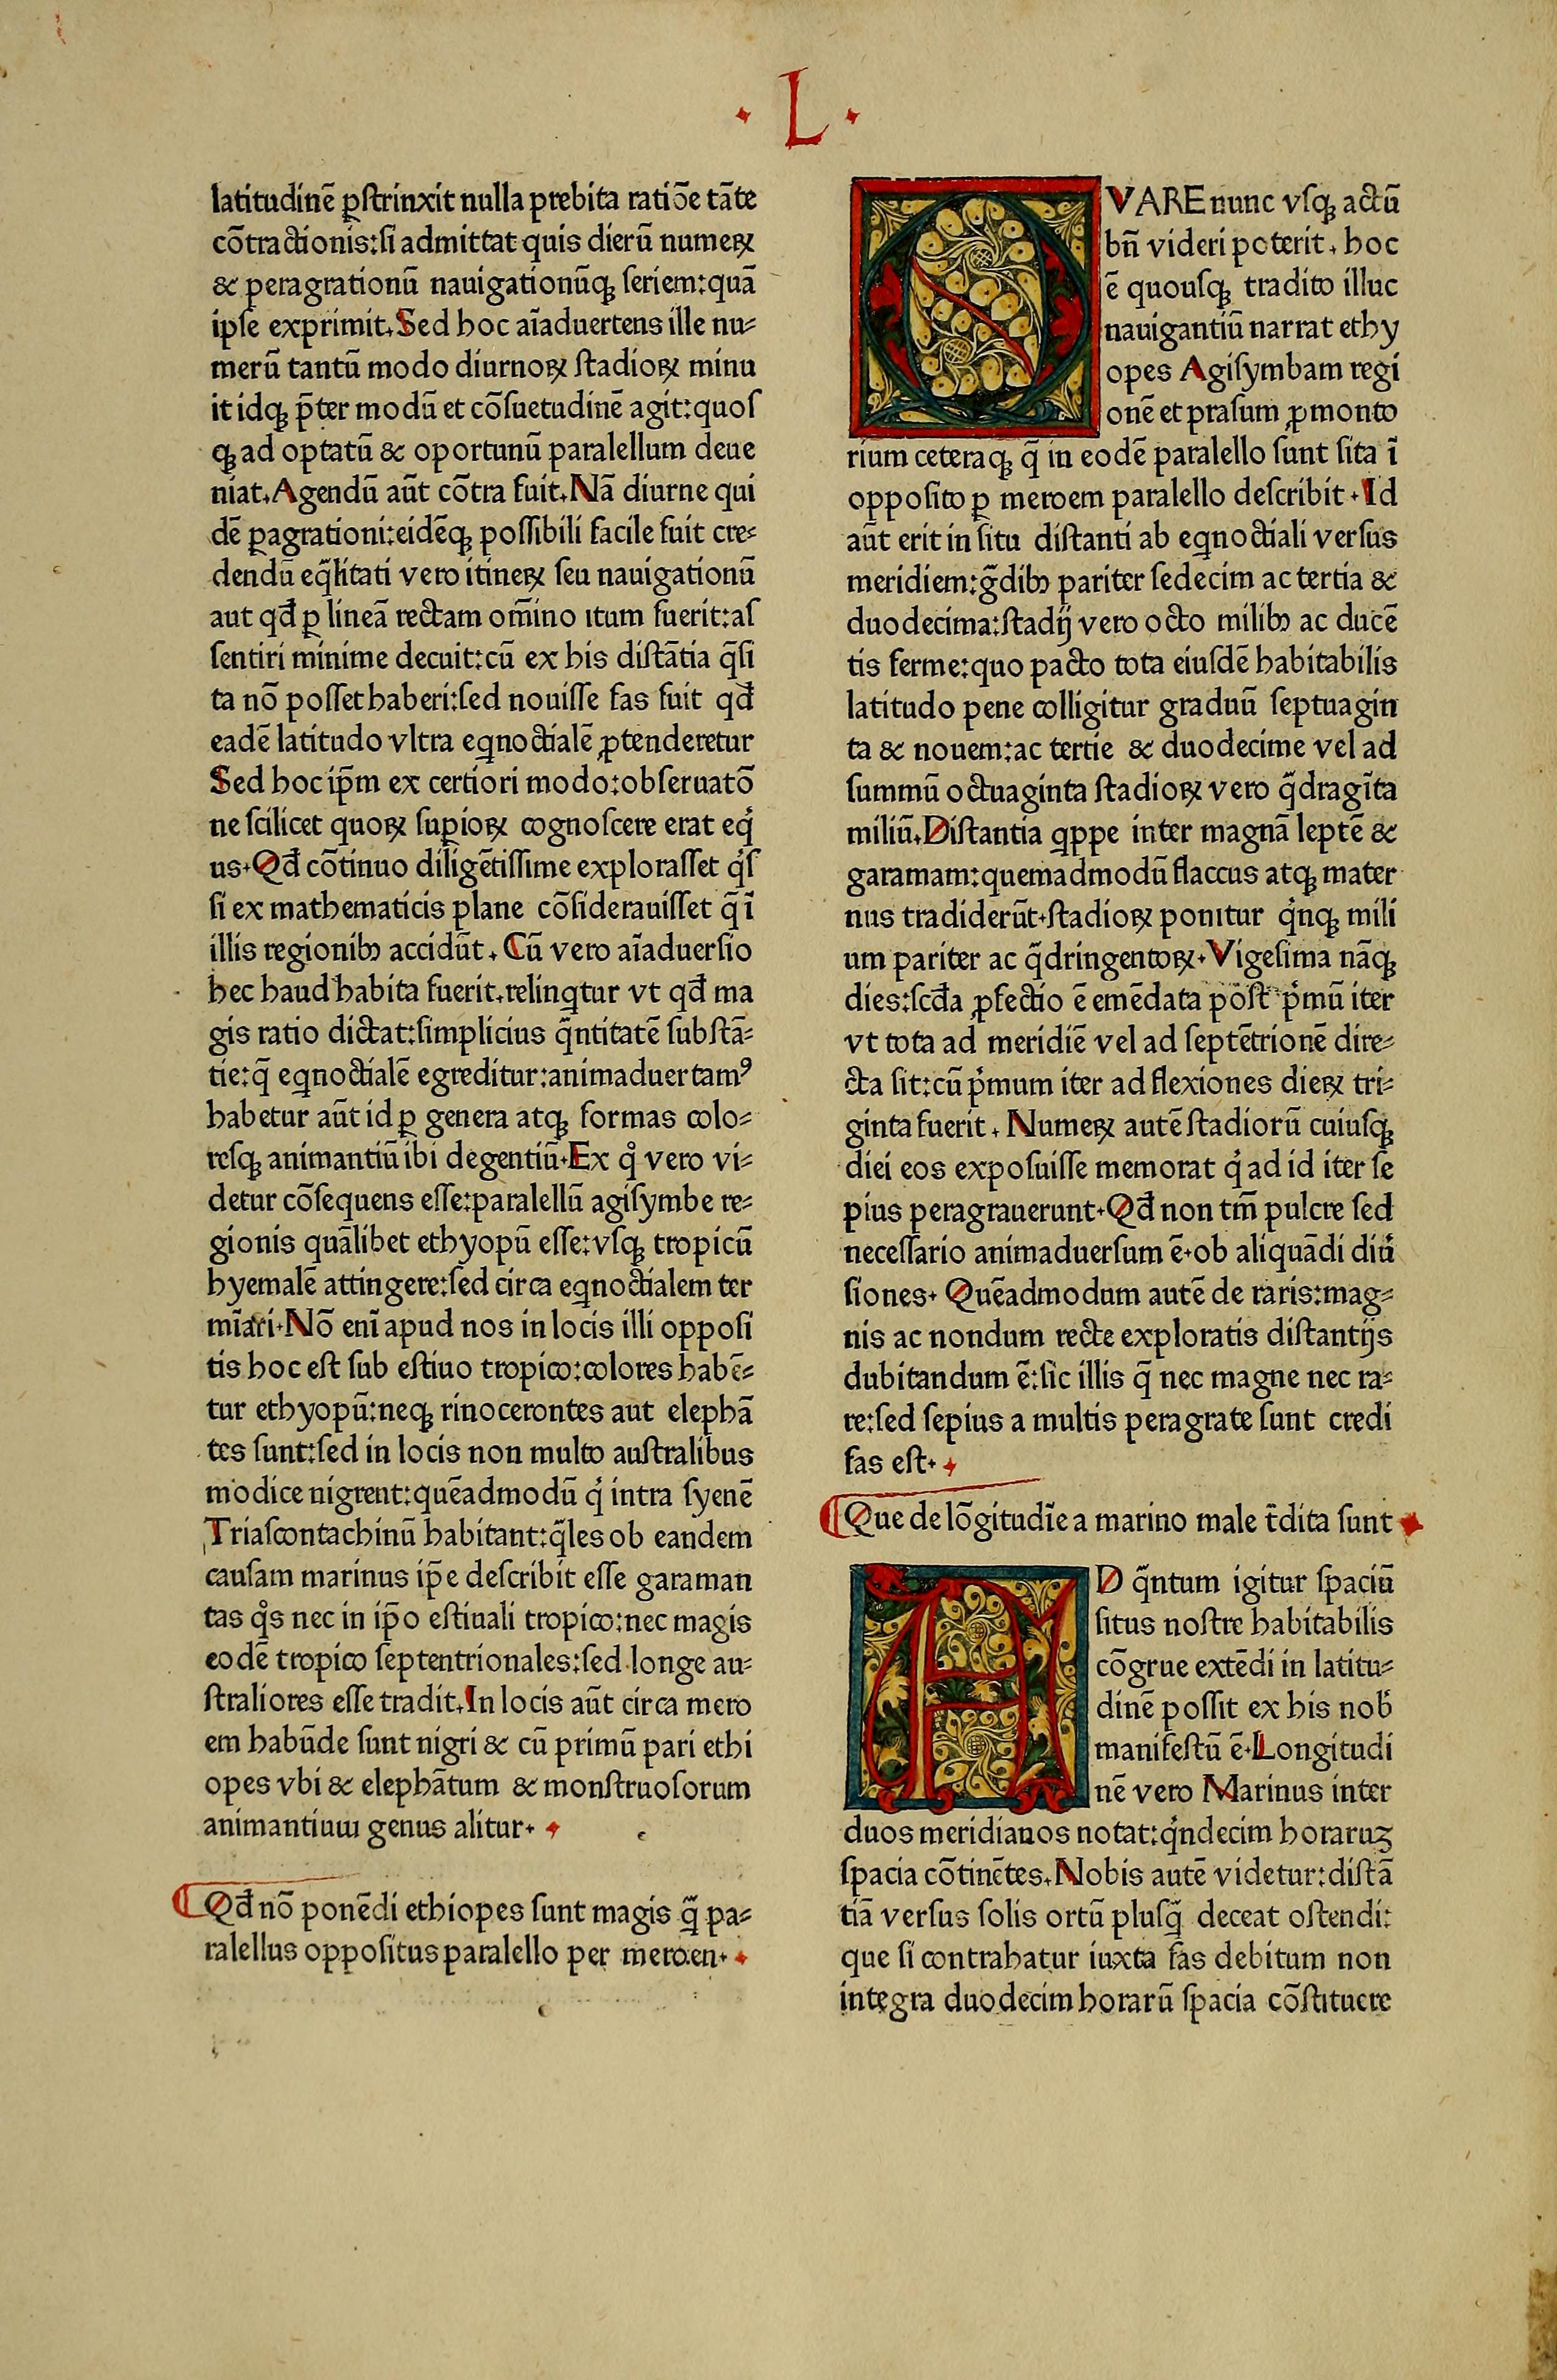 · L ·
latitudinē ꝑſtrinxit nulla prebita ratiōe tāte
cōtractionis:ſi admittat quis dierū numeꝝ
& peragrationū nauigationūqꝫ ſeriem:quā
ipſe exprimit.Sed hoc aīaduertens ille nu⸗
merū tantū modo diurnoꝝ ſtadioꝝ minu
it idqꝫ p̄ter modū et cōſuetudinē agit:quoſ
qꝫ ad optatū & oportunū paralellum deue
niat.Agendū aūt cōtra fuit.Nā diurne qui
dē ꝑagrationi:eidēqꝫ poſſibili facile fuit cre⸗
dendū eq̄litati vero itineꝝ ſeu nauigationū
aut qđ ꝑ lineā rectam om̄ino itum fuerit:aſ
ſentiri minime decuit:cū ex his diſtātia q̄ſi
ta nō poſſet haberi:ſed nouiſſe fas fuit qđ
eadē latitudo vltra eqnoctialē ꝓtenderetur
Sed hoc ip̄m ex certiori modo:obſeruatō
ne ſcilicet quoꝝ ſupioꝝ cognoſcere erat eqͥ
us.Qđ cōtinuo diligētiſſime exploraſſet qͥſ
ſi ex mathematicis plane cōſiderauiſſet q̄ ī
illis regionibꝫ accidūt. Cū vero aīaduerſio
hec haud habita fuerit.relinqtur vt qđ ma
gis ratio dictat:ſimplicius q̄ntitatē ſubſtā⸗
tie:q̄ eqnoctialē egreditur:animaduertamꝰ
habetur aūt id ꝑ genera atqꝫ formas colo⸗
reſqꝫ animantiū ibi degentiū.Ex qͦ vero vi⸗
detur cōſequens eſſe:paralellū agiſymbe re⸗
gionis quālibet ethyopū eſſe:vſqꝫ tropicū
hyemalē attingere:ſed circa eqnoctialem ter
mīari.Nō enī apud nos in locis illi oppoſi
tis hoc eſt ſub eſtiuo tropico:colores habē⸗
tur ethyopū:neqꝫ rinocerontes aut elephā
tes ſunt:ſed in locis non multo auſtralibus
modice nigrent:quēadmodū qͥ intra ſyenē
Triaſcontachinū habitant:q̄les ob eandem
cauſam marinus ip̄e deſcribit eſſe garaman
tas qͦs nec in ip̄o eſtiuali tropico:nec magis
eodē tropico ſeptentrionales:ſed longe au⸗
ſtraliores eſſe tradit.In locis aūt circa mero
em habūde ſunt nigri & cū primū pari ethi
opes vbi & elephātum & monſtruoſorum
animantium genus alitur.
Qđ nō ponēdi ethiopes ſunt magis q̄ pa⸗
ralellus oppoſitus paralello per meroen.
QVARE nunc vſqꝫ actū
bn̄ videri poterit. hoc
ē quouſqꝫ tradito illuc
nauigantiū narrat ethy
opes Agiſymbam regi
onē et praſum ꝓmonto
rium ceteraqꝫ q̄ in eodē paralello ſunt ſita ī
oppoſito ꝑ meroem paralello deſcribit.Id
aūt erit in ſitu diſtanti ab eqnoctiali verſus
meridiem:gͣdibꝫ pariter ſedecim ac tertia &
duodecima:ſtadij vero octo milibꝫ ac ducē
tis ferme:quo pacto tota eiuſdē habitabilis
latitudo pene colligitur graduū ſeptuagin
ta & nouem:ac tertie & duodecime vel ad
ſummū octuaginta ſtadioꝝ vero q̄dragīta
miliū.Diſtantia qppe inter magnā leptē &
garamam:quemadmodū flaccus atqꝫ mater
nus tradiderūt.ſtadioꝝ ponitur qͥnqꝫ mili
um pariter ac q̄dringentoꝝ.Vigeſima nāqꝫ
dies:ſcđa ꝓfectio ē emēdata pōſt pͥmū iter
vt tota ad meridiē vel ad ſeptētrionē dire⸗
cta ſit:cū pͥmum iter ad flexiones dieꝝ tri⸗
ginta fuerit. Numeꝝ autē ſtadiorū cuiuſqꝫ
diei eos expoſuiſſe memorat qͥ ad id iter ſe
pius peragrauerunt.Qđ non tm̄ pulcre ſed
neceſſario animaduerſum ē.ob aliquādi diu͛
ſiones. Quēadmodum autē de raris:mag⸗
nis ac nondum recte exploratis diſtantijs
dubitandum ē:ſic illis q̄ nec magne nec ra⸗
re:ſed ſepius a multis peragrate ſunt credi
fas eſt.
Que de lōgitudīe a marino male t̄dita ſunt
AD q̄ntum igitur ſpaciū
ſitus noſtre habitabilis
cōgrue extēdi in latitu⸗
dinē poſſit ex his nob̛
manifeſtū ē.Longitudi
nē vero Marinus inter
duos meridianos notat:qͥndecim horaruꝫ
ſpacia cōtinētes.Nobis autē videtur:diſtā
tiā verſus ſolis ortū pluſq̄ deceat oſtendi:
que ſi contrahatur iuxta fas debitum non
integra duodecim horarū ſpacia cōſtituere